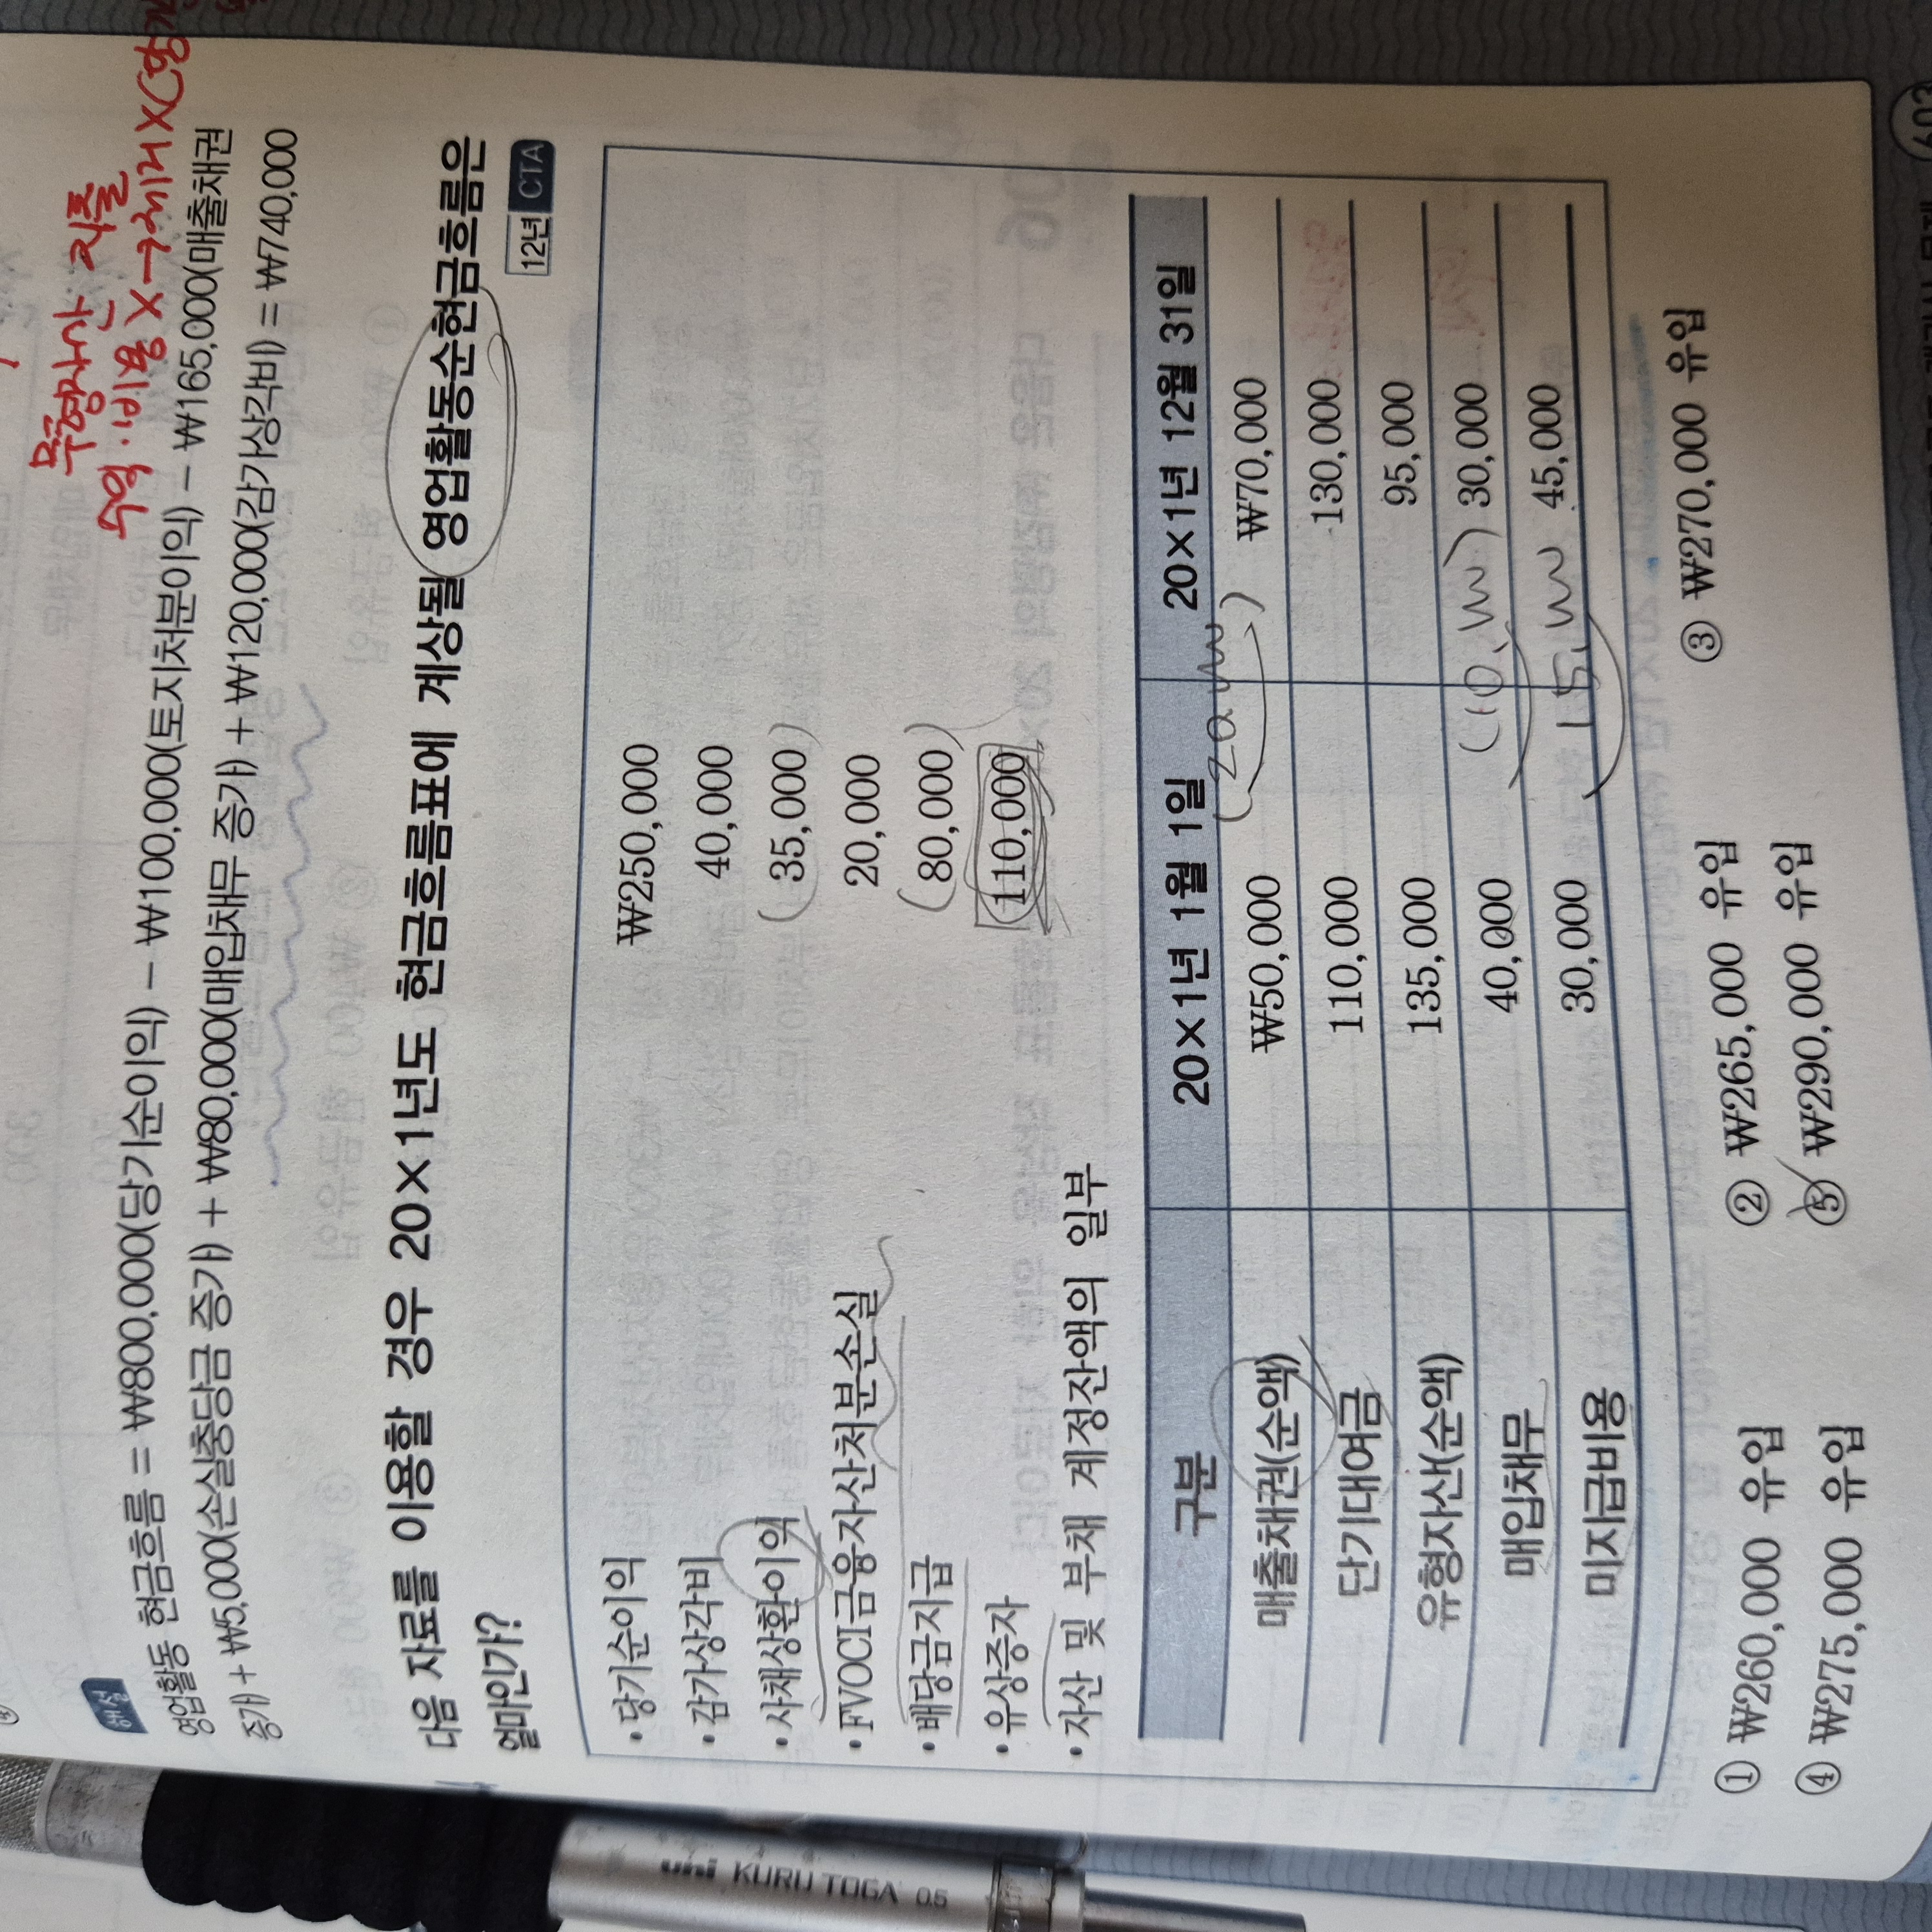 무형자산 지출
수익·비용 X → 제거 X
해설
영업활동 현금흐름 = ₩800,000(당기순이익) − ₩100,000(토지처분이익) − ₩165,000(매출채권
증가) + ₩5,000(손실충당금 증가) + ₩80,000(매입채무 증가) + ₩120,000(감가상각비) = ₩740,000
다음 자료를 이용할 경우 20×1년도 현금흐름표에 계상될 영업활동순현금흐름은
얼마인가?
12년 CTA
• 당기순이익 ₩250,000
• 감가상각비 40,000
• 사채상환이익 (35,000)
• FVOCI금융자산처분손실 20,000
• 배당금지급 (80,000)
• 유상증자 110,000
• 자산 및 부채 계정잔액의 일부
구분 20×1년 1월 1일 20×1년 12월 31일
매출채권(순액) ₩50,000 ₩70,000
단기대여금 110,000 130,000
유형자산(순액) 135,000 95,000
매입채무 40,000 30,000
미지급비용 30,000 45,000
① ₩260,000 유입 ② ₩265,000 유입 ③ ₩270,000 유입
④ ₩275,000 유입 ⑤ ₩290,000 유입
uni KURU TOGA 0.5